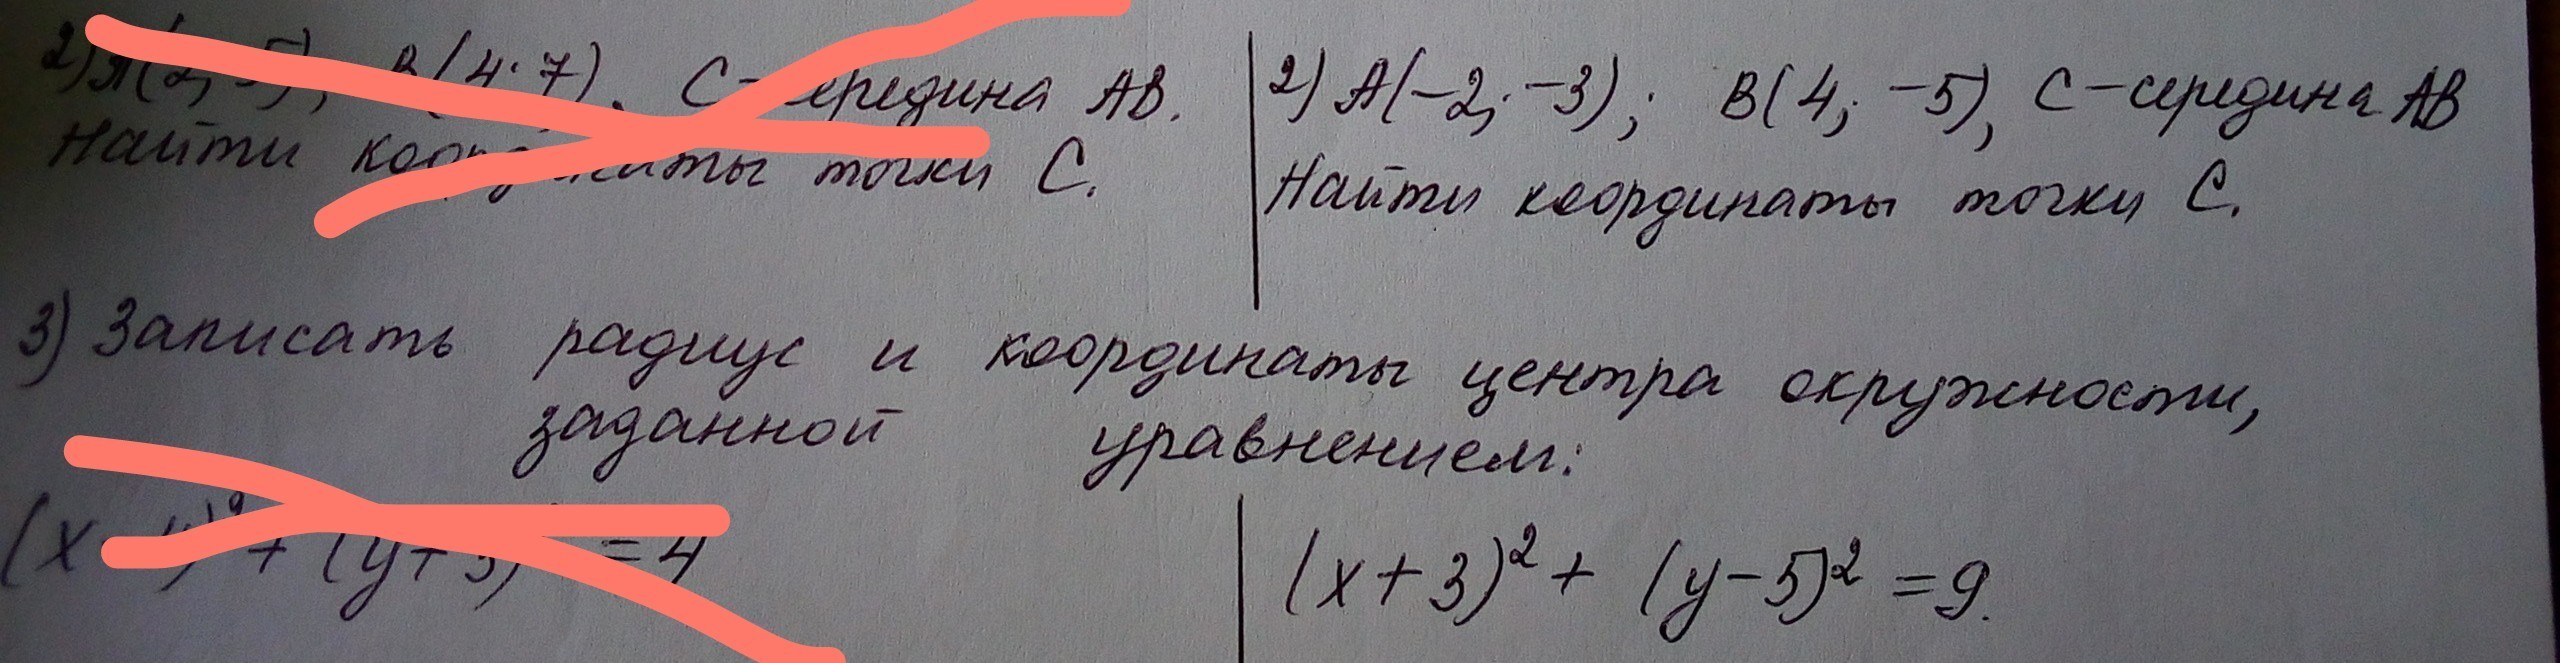 2) А(2; 5), В(4; 7). С – середина АВ.
Найти координаты точки С.
2) А(-2; -3); В(4; -5), С – середина АВ
Найти координаты точки С.
3) Записать радиус и координаты центра окружности,
заданной уравнением:
(x + (y+3) = 4
(x+3)² + (y-5)² = 9.